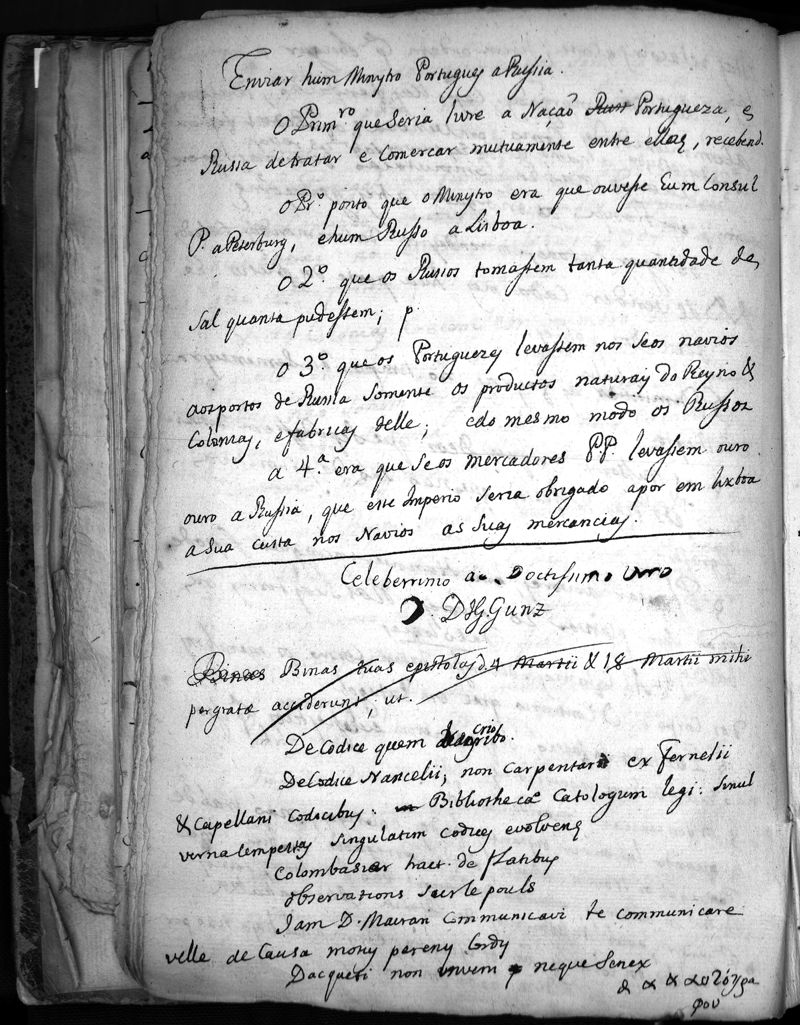 Enviar hum Minystro Portuguez a Russia.
O Primro. que Seria livre a Nação Portugueza, e
Russia de tratar e Comercar mutuamente entre ellas, recebend.
O Pro. ponto que o Minystro era que ouvesse Eum Consul
P. a Peterburg, ehum Russo a Lisboa.
O 2o. que os Rusios tomassem tanta quantidade de
Sal quanta pudessem; p.
O 3o. que os Portuguezes levassem nos Seos navios
aos portos de Russia Somente os productos naturais do Reyno &
Colonias, e fabricas delle; e do mesmo modo os Russos
a 4.a era que Se os mercadores P.P. levassem ouro
ouro a Russia, que este Imperio Seria obrigado a por em Lixboa
a Sua Custa nos Navios as Suas mercancias.
Celeberrimo ac Doctissimo Viro
D. D J G. Gunz
Binas Binas tuas epistolas d. 4 Martii & 18 Martii mihi
pergratæ acciderunt, ut.
De Codice quem
De Codice Nancelii, non Carpentarii ex Fernelii
& Capellani Codicibus: Bibliothecæ Catologum legi: Simul
verna tempestas Singulatim codices evolvens
Colombasier tract. de flatibus
observations Sur le pouls
Iam D. Mairan Communicavi te communicare
velle de Causa motus perenis Cordis
Dacqueti non neque Senex
& & &